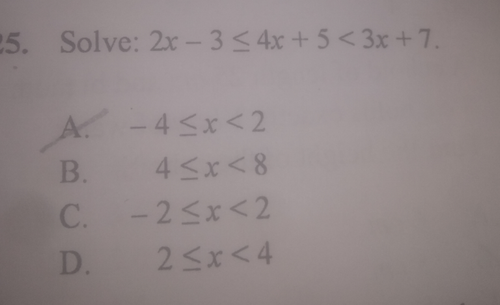 25. Solve: 2x – 3 ≤ 4x + 5 < 3x + 7.
A. – 4 ≤ x < 2
B. 4 ≤ x < 8
C. – 2 ≤ x < 2
D. 2 ≤ x < 4